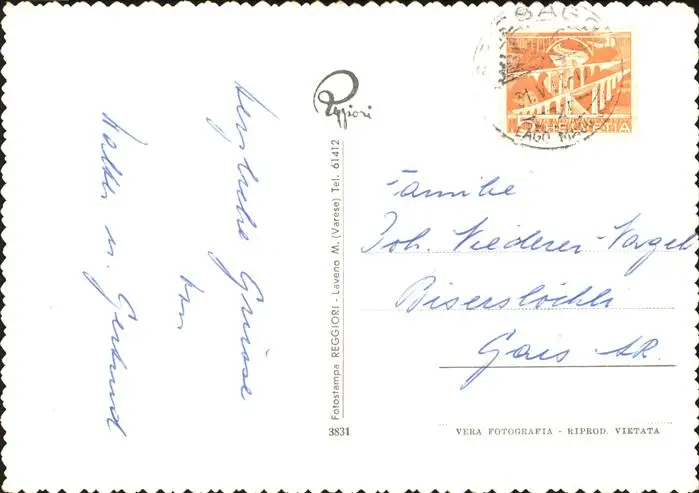 herzliche Grüsse
von
Walter u. Gertrud
Reggiori
Fotostampa REGGIORI - Laveno M. (Varese) Tel. 61412
3831
HELVETIA
LAGO
Familie
Joh. Niederer-Vogel
Gais AR.
VERA FOTOGRAFIA - RIPROD. VIETATA